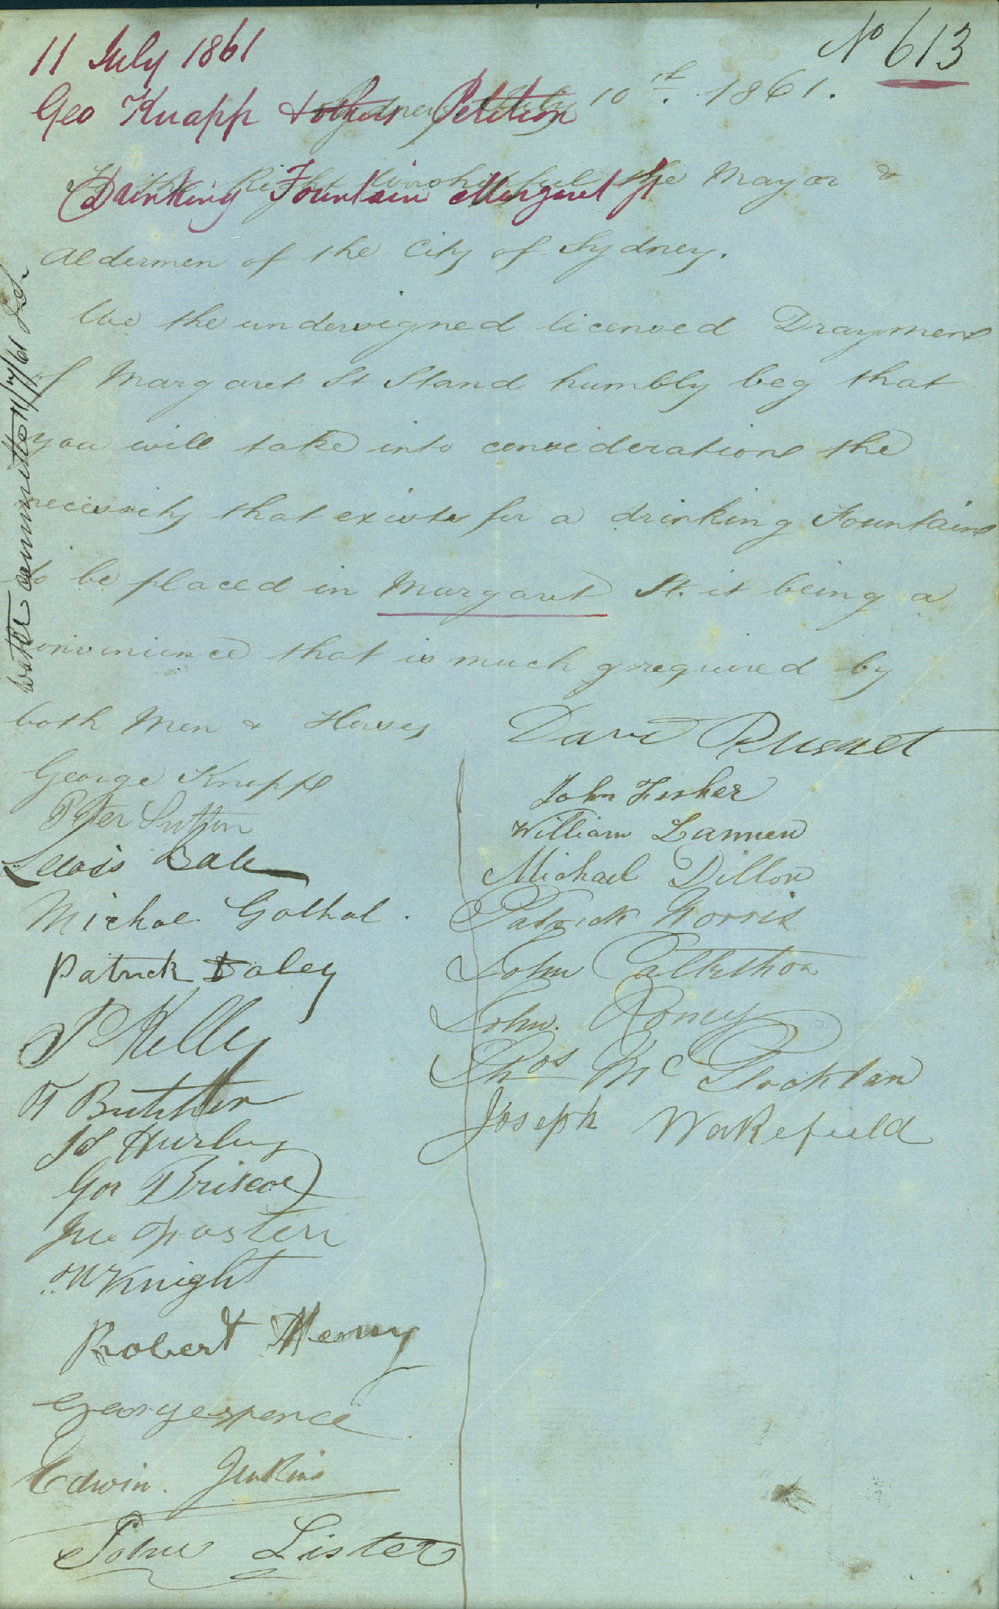 11 July 1861
No 613
Geo Knapp & others Petition
Sydney July 10th 1861.
Drinking Fountain Margaret St
To the Right Worshipful the Mayor &
Aldermen of the City of Sydney.
We the undersigned licensed Draymen
of Margaret St Stand humbly beg that
you will take into considerations the
necessity that exists for a drinking Fountain
to be placed in Margaret St. it being a
convinience that is much required by
both Men & Horses
Water Committee 11/7/61 J.S.
George Knapp
Peter Sutton
Lewis Bale
Michael Gothal.
Patrick Daley
P Kelly
Butcher
Hurley
Geo Briscoe
Knight
Robert Henry
George spence
Edwin. Jenkins
John Lister
David
John Fisher
William Lannen
Michael Dillon
Patrick Norris
John
John. Roney
Thos Mc
Joseph Wakefield